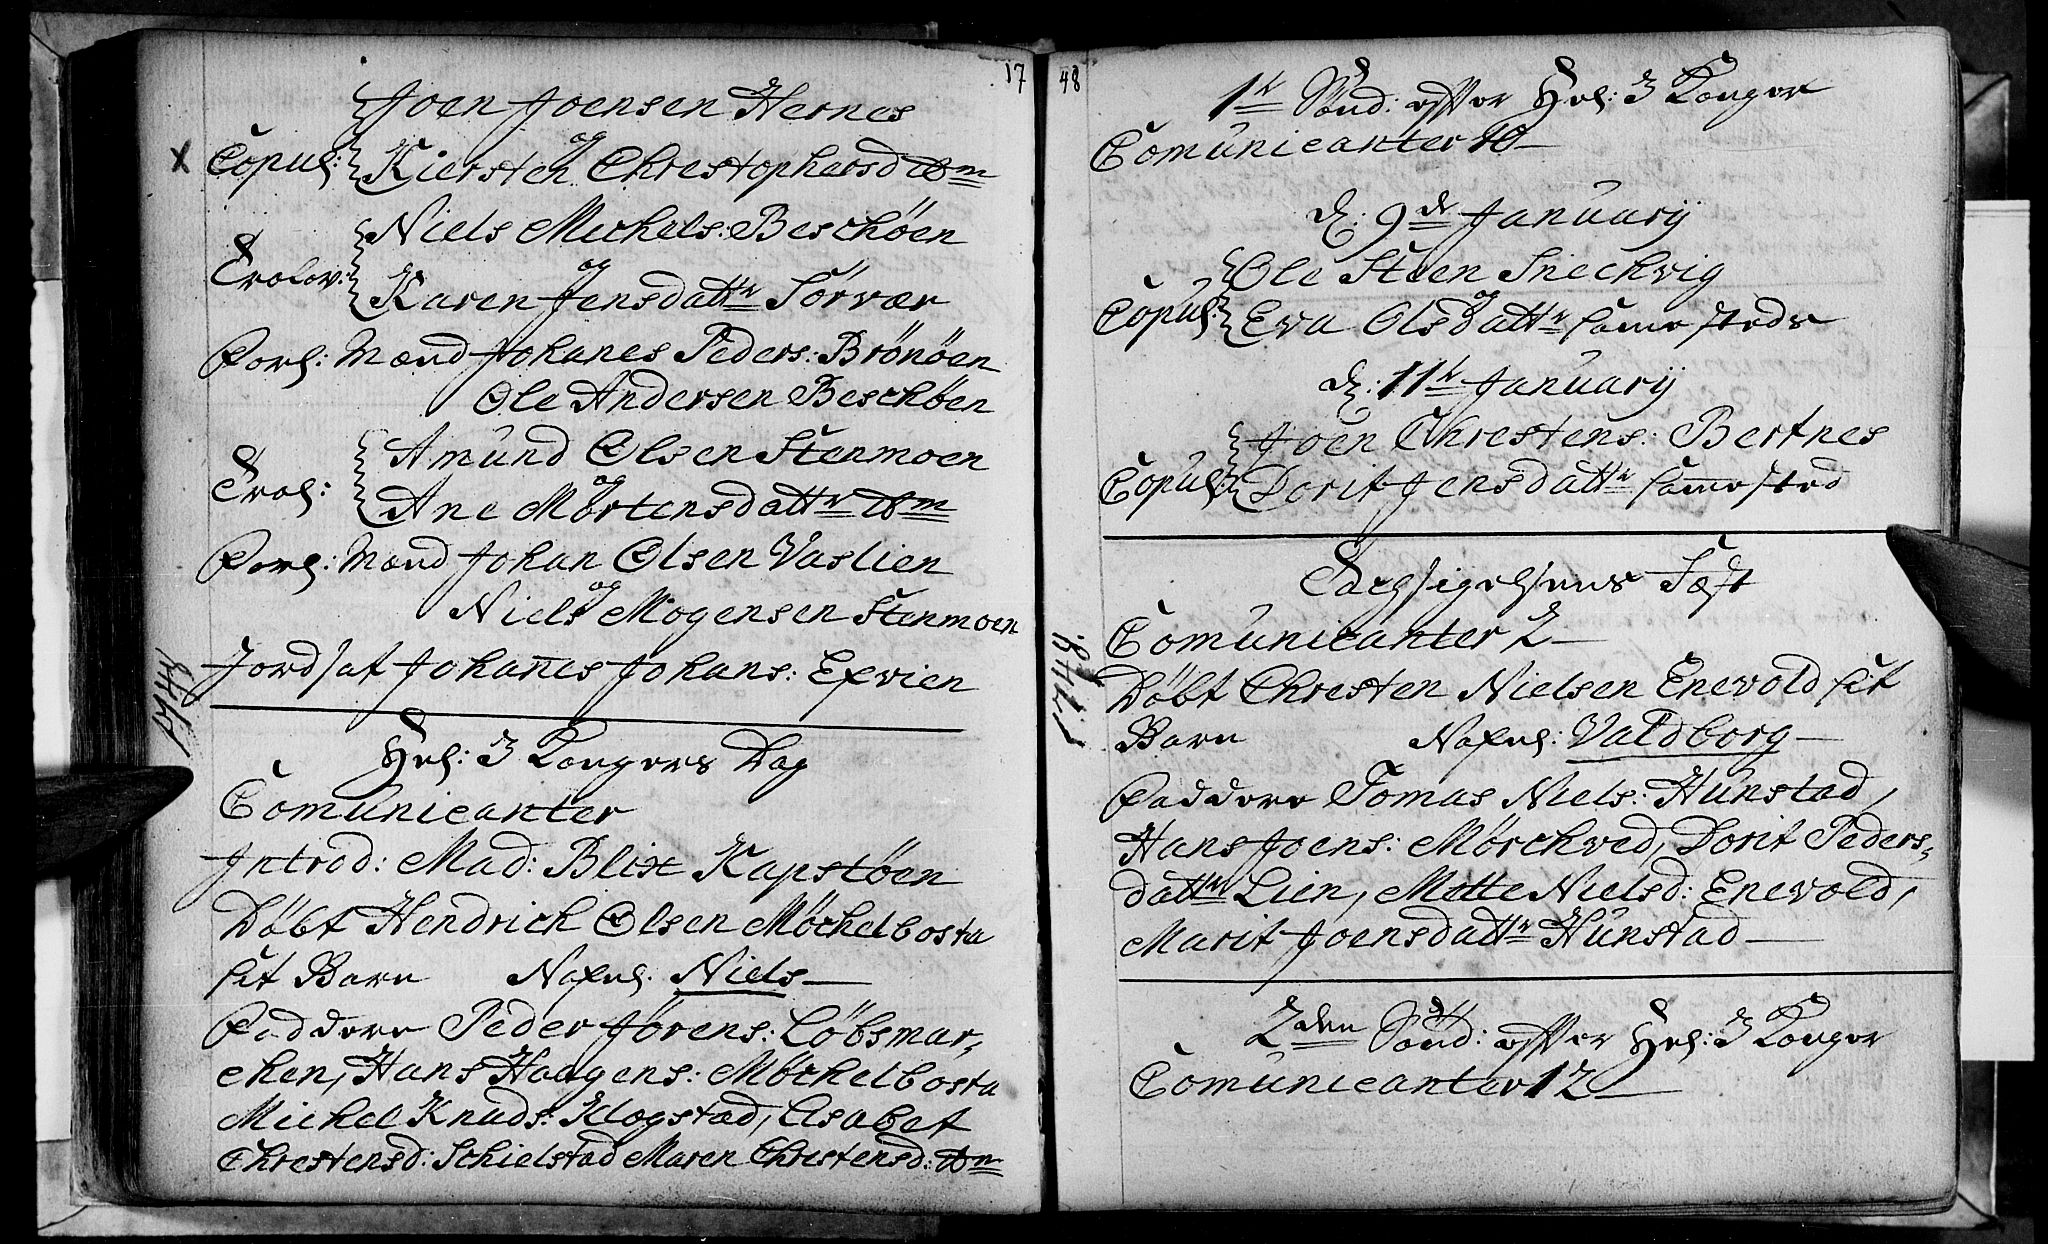 17
Joen Joensen Hernes
og
x Copul: Kiersten Chrestophersd ibm
Niels Michels: Beschöen
og
Trolov: Karen Jensdattr Sörvær
Forl: Mænd Johanes Peders: Brönöen
Ole Andersen Beschöen
Amund Olsen Stenmoen
og
Trol: Ane Mortensdattr ibm
Forl: Mænd Johan Olsen Vaslien
og
Niels Mogensen Stenmoen
Jordsat Johanes Johans:
1748
Hel: 3 Kongers Dag
Comunicanter
Introd: Mad: Blix Kapstöen
Döbt Hendrich Olsen Möchelbosta
sit Barn Nafnl. Niels
Faddere Peder Jörens: Löbsmar-
chen, Hans Haagens: Möchelbosta
Michel Knuds: Klogstad, Elsabet
Chrestensd: Schielstad Maren Chrestensd: ibm
48
1te Sönd: efter Hel: 3 Konger
Comunicanter 10
d: 9de January
Ole Steen Snechvig
og
Copul: Eva Olsdattr samesteds
d: 11te January
Joen Chrestens: Bertnes
Copul: Dorit Jensdattr samested
Tachsigelsens Fæst
Comunicanter 2
1748.
Döbt Chresten Nielsen Enevold sit
Barn Nafnl: Valdborg
Faddere Tomas Niels: Hunstad,
Hans Joens: Mörchved, Dorit Peders-
dattr Lien, Mette Nielsd: Enevold,
Marit Joensdattr Hunstad
2den Sönd: efter Hel: 3 Konger
Comunicanter 12